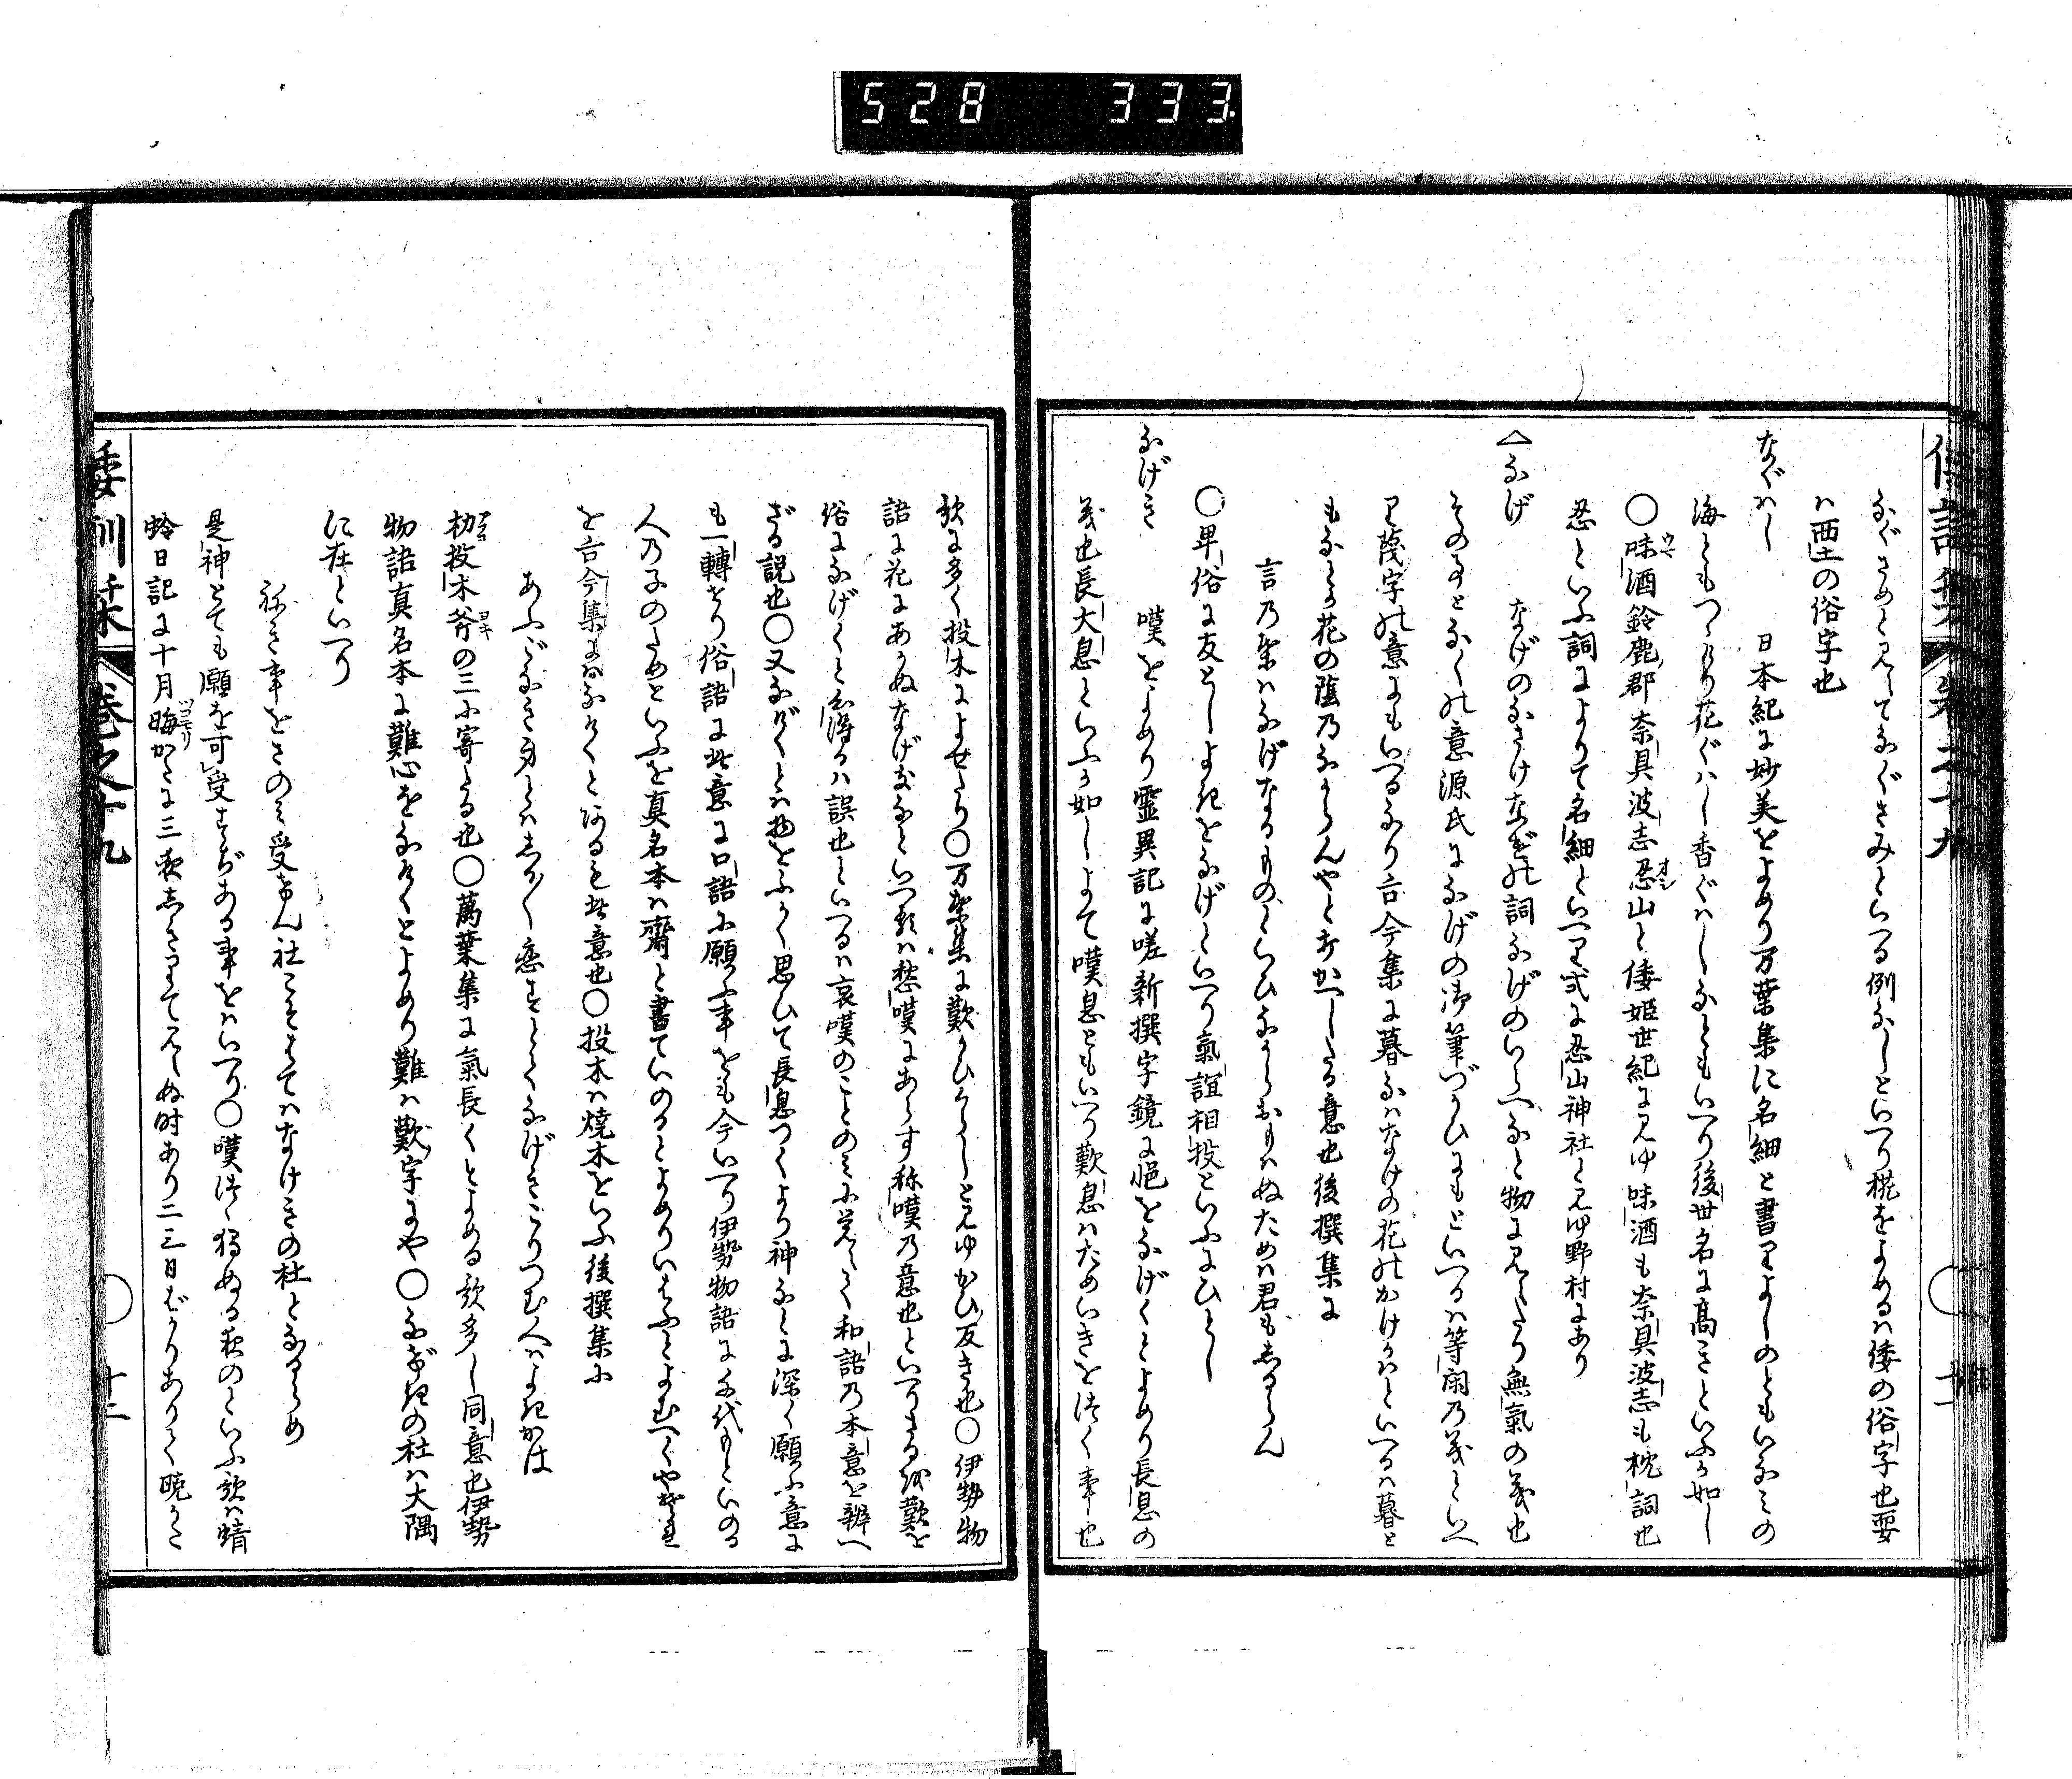 528 333
なぐさめとかへてなぐさみといへる例なしといへり椛をよめるハ倭の俗字也耍
ハ西土の俗字也
なぐハし 日本紀に妙美をよめり万葉集に名細と書りよしのともいなみの
海ともつゝけり花ぐハし香ぐハしなともいへり後世名に高きといふか如し
○味酒鈴鹿郡奈具波志忍山と倭姫世紀に見ゆ味酒も奈具波志も枕詞也
忍といふ詞によりて名細といへり式に忍山神社と見ゆ野村にあり
△なげ なげのなさけなげの詞なげのいらへなと物に見えたり無氣の義也
そのことなくの意源氏になげの御筆づかひにもといへるハ等閑乃義といへ
り蔑字の意にもいへるなり古今集に暮なハなけの花のかけかハといへるハ暮と
もなくる花の蔭乃なからんやとおかへしたる意也後撰集に
言乃葉ハなげなるものといひなからおもハぬためハ君もしるらん
○卑俗に友としよきをなげといへり氣誼相投といふにひとし
なげき 嘆をよめり霊異記に嗟新撰字鏡に悒をなげくとよめり長息の
義也長大息といふか如しよて嘆息ともいへり歎息ハためいきを付く事也
歌に多く投木によせたり○万葉集に歎かひくらしと見ゆかひ反き也○伊勢物
語に花にあかぬなげきなといへるハ愁嘆にあらす称嘆乃意也といへりさるを歎を
俗になげくと心得るハ誤也といへるハ哀嘆のことのミに覚えて和語乃本意を辨へ
ざる説也○又なげくとハ物をふかく思ひて長息つくより神なとに深く願ふ意に
も一轉せり俗語に此意に口語に願ふ事をも今いへり伊勢物語に千代もといのる
人乃子のためといふを真名本ハ齋と書ていのるとよめりいはふとよむへくや
を古今集にハなけくとあるも此意也○投木ハ燒木をいふ後撰集に
あふごなき身とハしる〳〵恋すとてなげきこりつむ人ハよきかは
朸投木斧の三に寄たる也○萬葉集に氣長くとよめる歌多し同意也伊勢
物語真名本に難心をなけくとよめり難ハ歎字にや○なげきの杜ハ大隅
に在といへり
祢き事をさのミ受けん社こそはてハなけきの杜となるらめ
是神とても願を可受すぢある事をハいへり○嘆つゝ獨ぬる夜のといふ歌ハ蜻
蛉日記に十月晦かたに三夜しきりて見えぬ时あり二三日ばかりありて曉かた
倭訓栞 巻之十九 ○ 十二